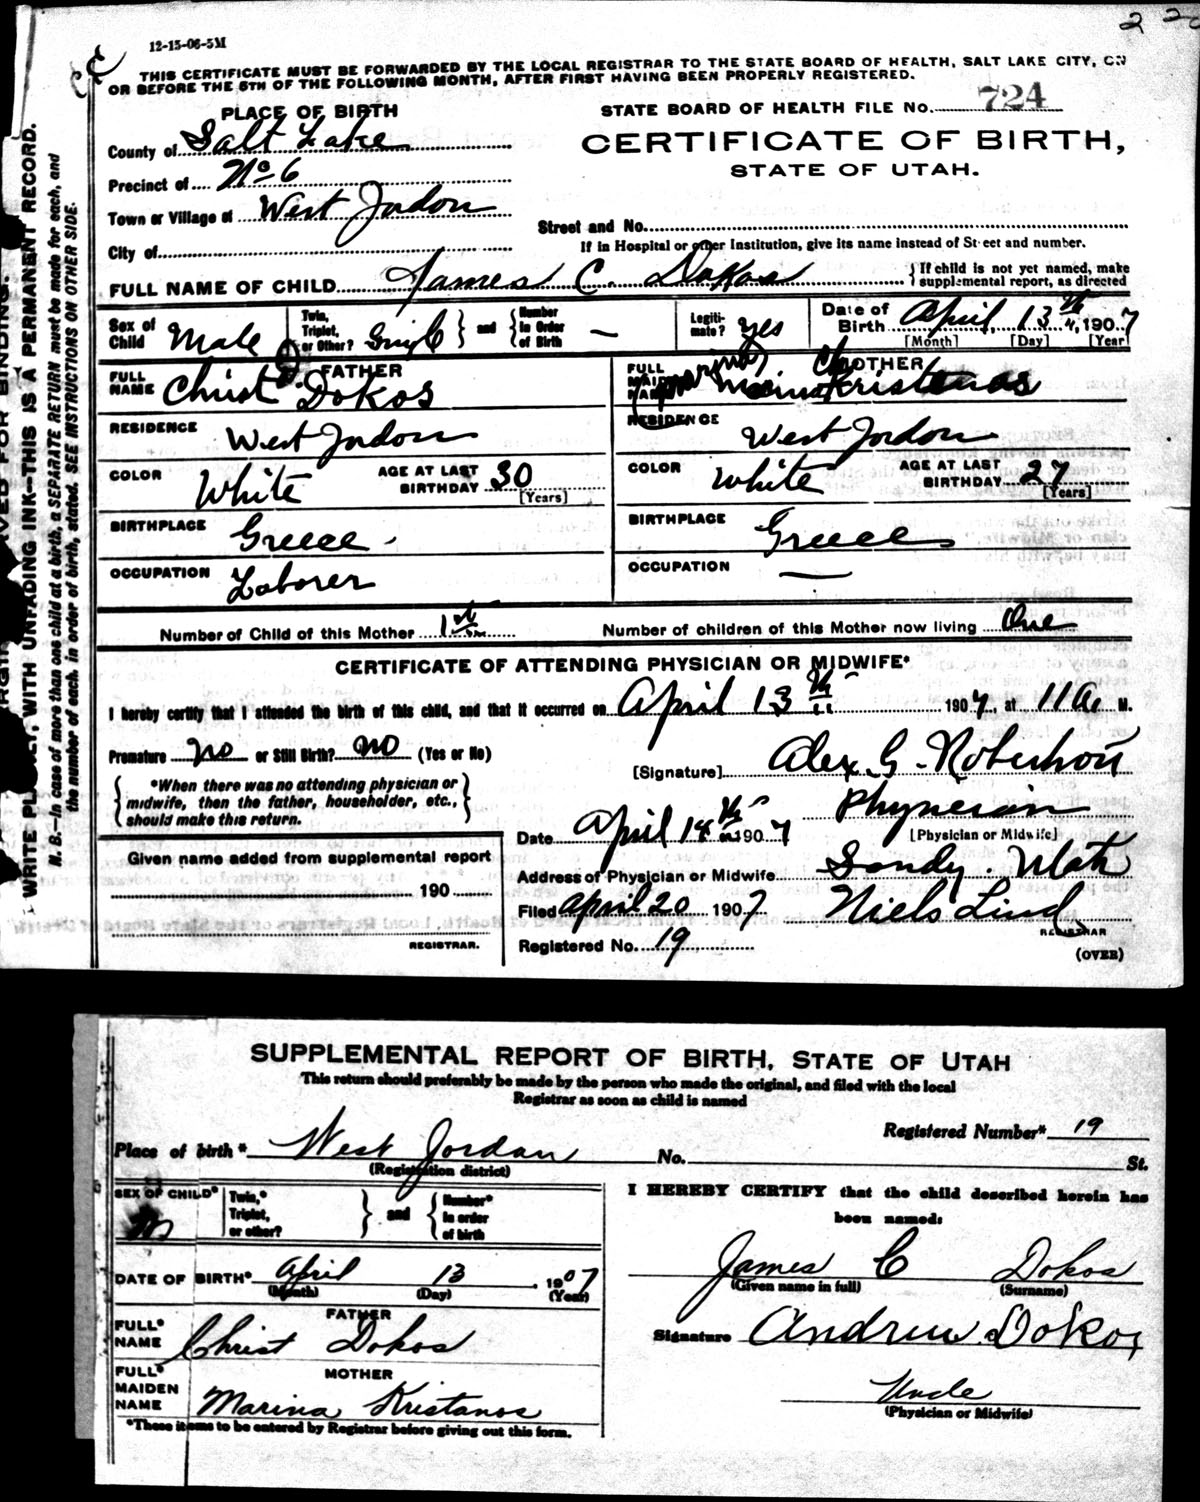 12-15-06-5M
THIS CERTIFICATE MUST BE FORWARDED BY THE LOCAL REGISTRAR TO THE STATE BOARD OF HEALTH, SALT LAKE CITY, ON
OR BEFORE THE 5TH OF THE FOLLOWING MONTH, AFTER FIRST HAVING BEEN PROPERLY REGISTERED.
WRITE PLAINLY, WITH UNFADING INK—THIS IS A PERMANENT RECORD.
N. B.—In case of more than one child at a birth, a SEPARATE RETURN must be made for each, and
the number of each, in order of birth, stated. SEE INSTRUCTIONS ON OTHER SIDE.
PLACE OF BIRTH
STATE BOARD OF HEALTH FILE NO. 724
County of Salt Lake
CERTIFICATE OF BIRTH,
STATE OF UTAH.
Precinct of No 6
Town or Village of West Jordon
Street and No.
City of
If in Hospital or other Institution, give its name instead of Street and number.
FULL NAME OF CHILD James C. Dokos
If child is not yet named, make
supplemental report, as directed
Sex of Child Male
Twin, Triplet, or Other? Single and Number in Order of Birth —
Legitimate? Yes
Date of Birth April 13th, 1907
[Month] [Day] [Year]
FATHER
FULL NAME Christ Dokos
RESIDENCE West Jordon
COLOR White AGE AT LAST BIRTHDAY 30
[Years]
BIRTHPLACE Greece
OCCUPATION Laborer
MOTHER
FULL MAIDEN NAME (Marina) Kristenas
RESIDENCE West Jordon
COLOR White AGE AT LAST BIRTHDAY 27
[Years]
BIRTHPLACE Greece
OCCUPATION —
Number of Child of this Mother 1st Number of children of this Mother now living One
CERTIFICATE OF ATTENDING PHYSICIAN OR MIDWIFE*
I hereby certify that I attended the birth of this child, and that it occurred on April 13th 1907, at 11 a M.
Premature no or Still Birth? no (Yes or No)
[Signature] Alex. G. Robertson
*When there was no attending physician or
midwife, then the father, householder, etc.,
should make this return.
Physician
[Physician or Midwife]
Date April 18th 1907
Given name added from supplemental report
190
REGISTRAR.
Address of Physician or Midwife Sandy. Utah
Filed April 20 1907 Niels Lind
REGISTRAR
Registered No. 19
(OVER)
SUPPLEMENTAL REPORT OF BIRTH, STATE OF UTAH
This return should preferably be made by the person who made the original, and filed with the local
Registrar as soon as child is named
Registered Number* 19
Place of birth* West Jordan No. St.
(Registration district)
SEX OF CHILD* M
Twin,* Triplet, or other? and Number* in order of birth
DATE OF BIRTH* April 13, 1907
(Month) (Day) (Year)
FATHER
FULL* NAME Christ Dokos
MOTHER
FULL* MAIDEN NAME Marina Kristanos
*These items to be entered by Registrar before giving out this form.
I HEREBY CERTIFY that the child described herein has
been named:
James C Dokos
(Given name in full) (Surname)
Signature Andrew Dokos
Uncle
(Physician or Midwife)